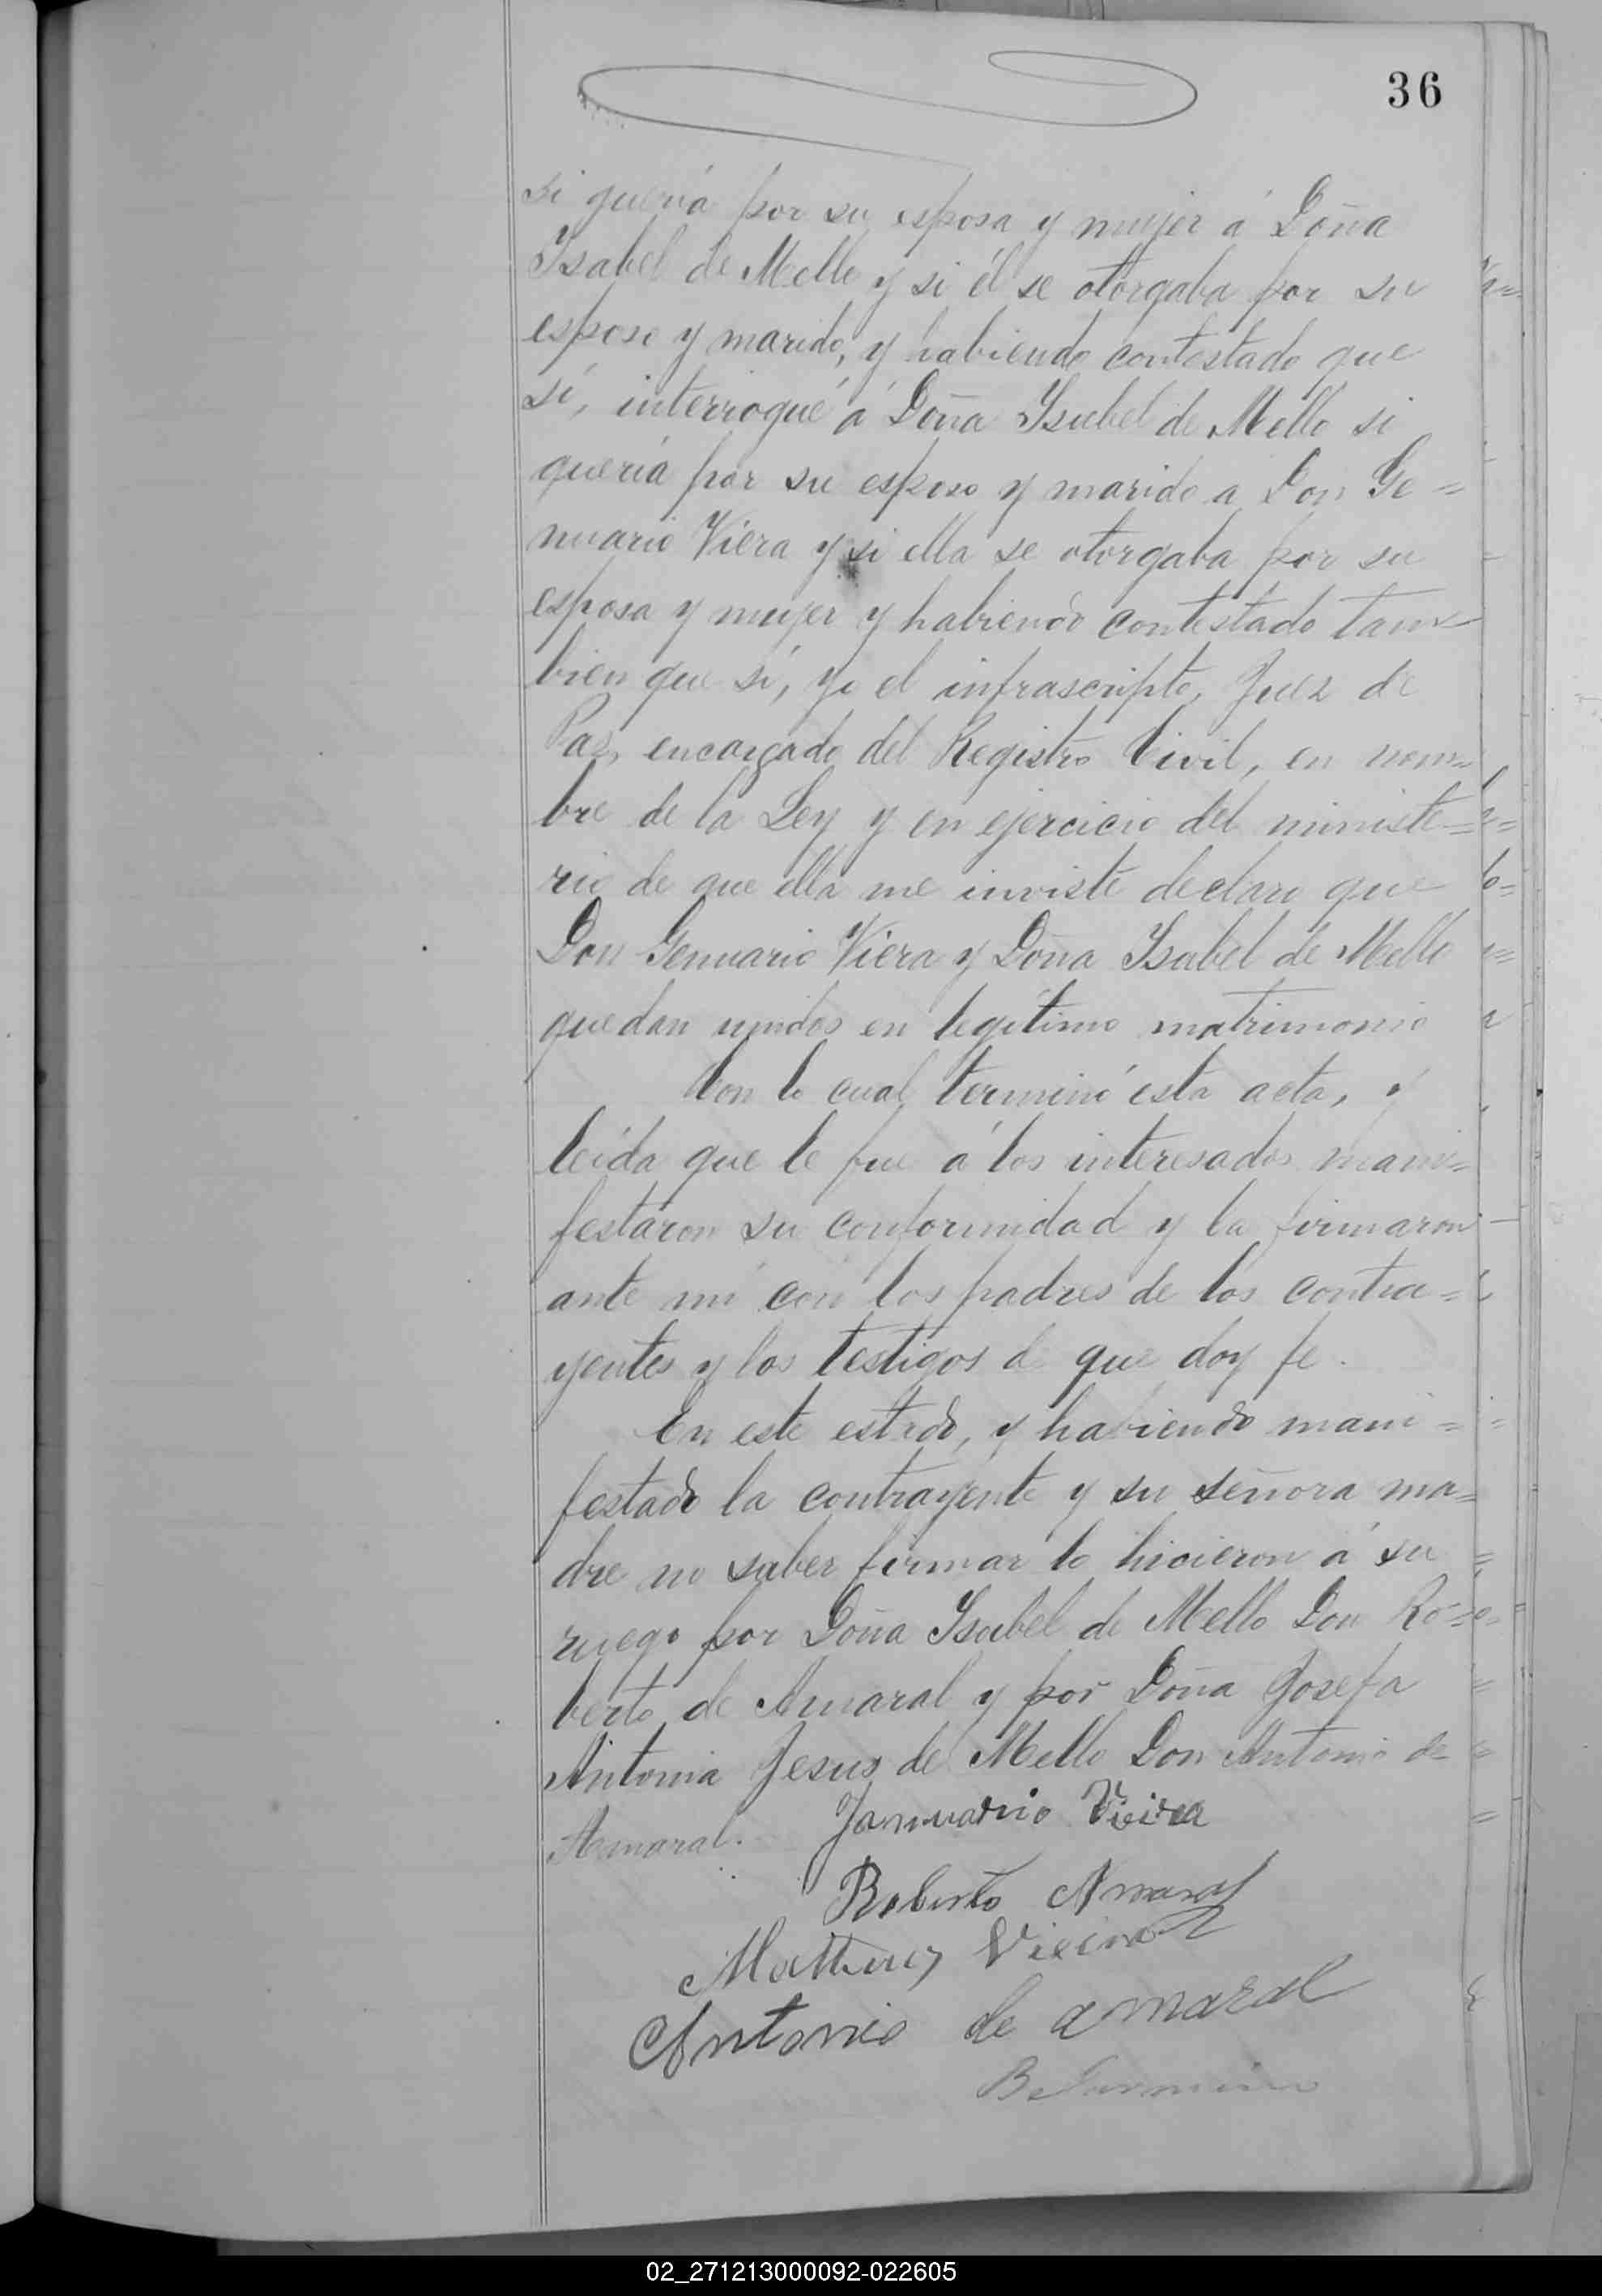 36
si quería por su esposa y mujer á Doña
Ysabel de Mello y si él se otorgaba por su
esposo y marido, y habiendo contestado que
sí, interrogué á Doña Ysabel de Mello si
quería por su esposo y marido a Don Ge=
nuario Viera y si ella se otorgaba por su
esposa y mujer y habiendo contestado tam=
bien que sí, yo el infrascripto, Juez de
Paz, encargado del Registro Civil, en nom=
bre de la Ley y en ejercicio del ministe=
rio de que ella me inviste declaro que
Don Genuario Viera y Doña Ysabel de Mello
quedan unidos en legítimo matrimonio
Con lo cual terminó esta acta, y
leída que le fue á los interesados mani=
festaron su conformidad y la firmaron
ante mí con los padres de los contra=
yentes y los testigos de que doy fe.
En este estado, y habiendo mani=
festado la contrayente y su señora ma=
dre no saber firmar lo hicieron á su
ruego por Doña Ysabel de Mello Don Ro=
berto de Amaral y por Doña Josefa
Antonia Jesus de Mello Don Antonio de
Amaral.
Januario Vieira
Roberto Amaral
Matheus Vieira
Antonio de amaral
02_271213000092-022605